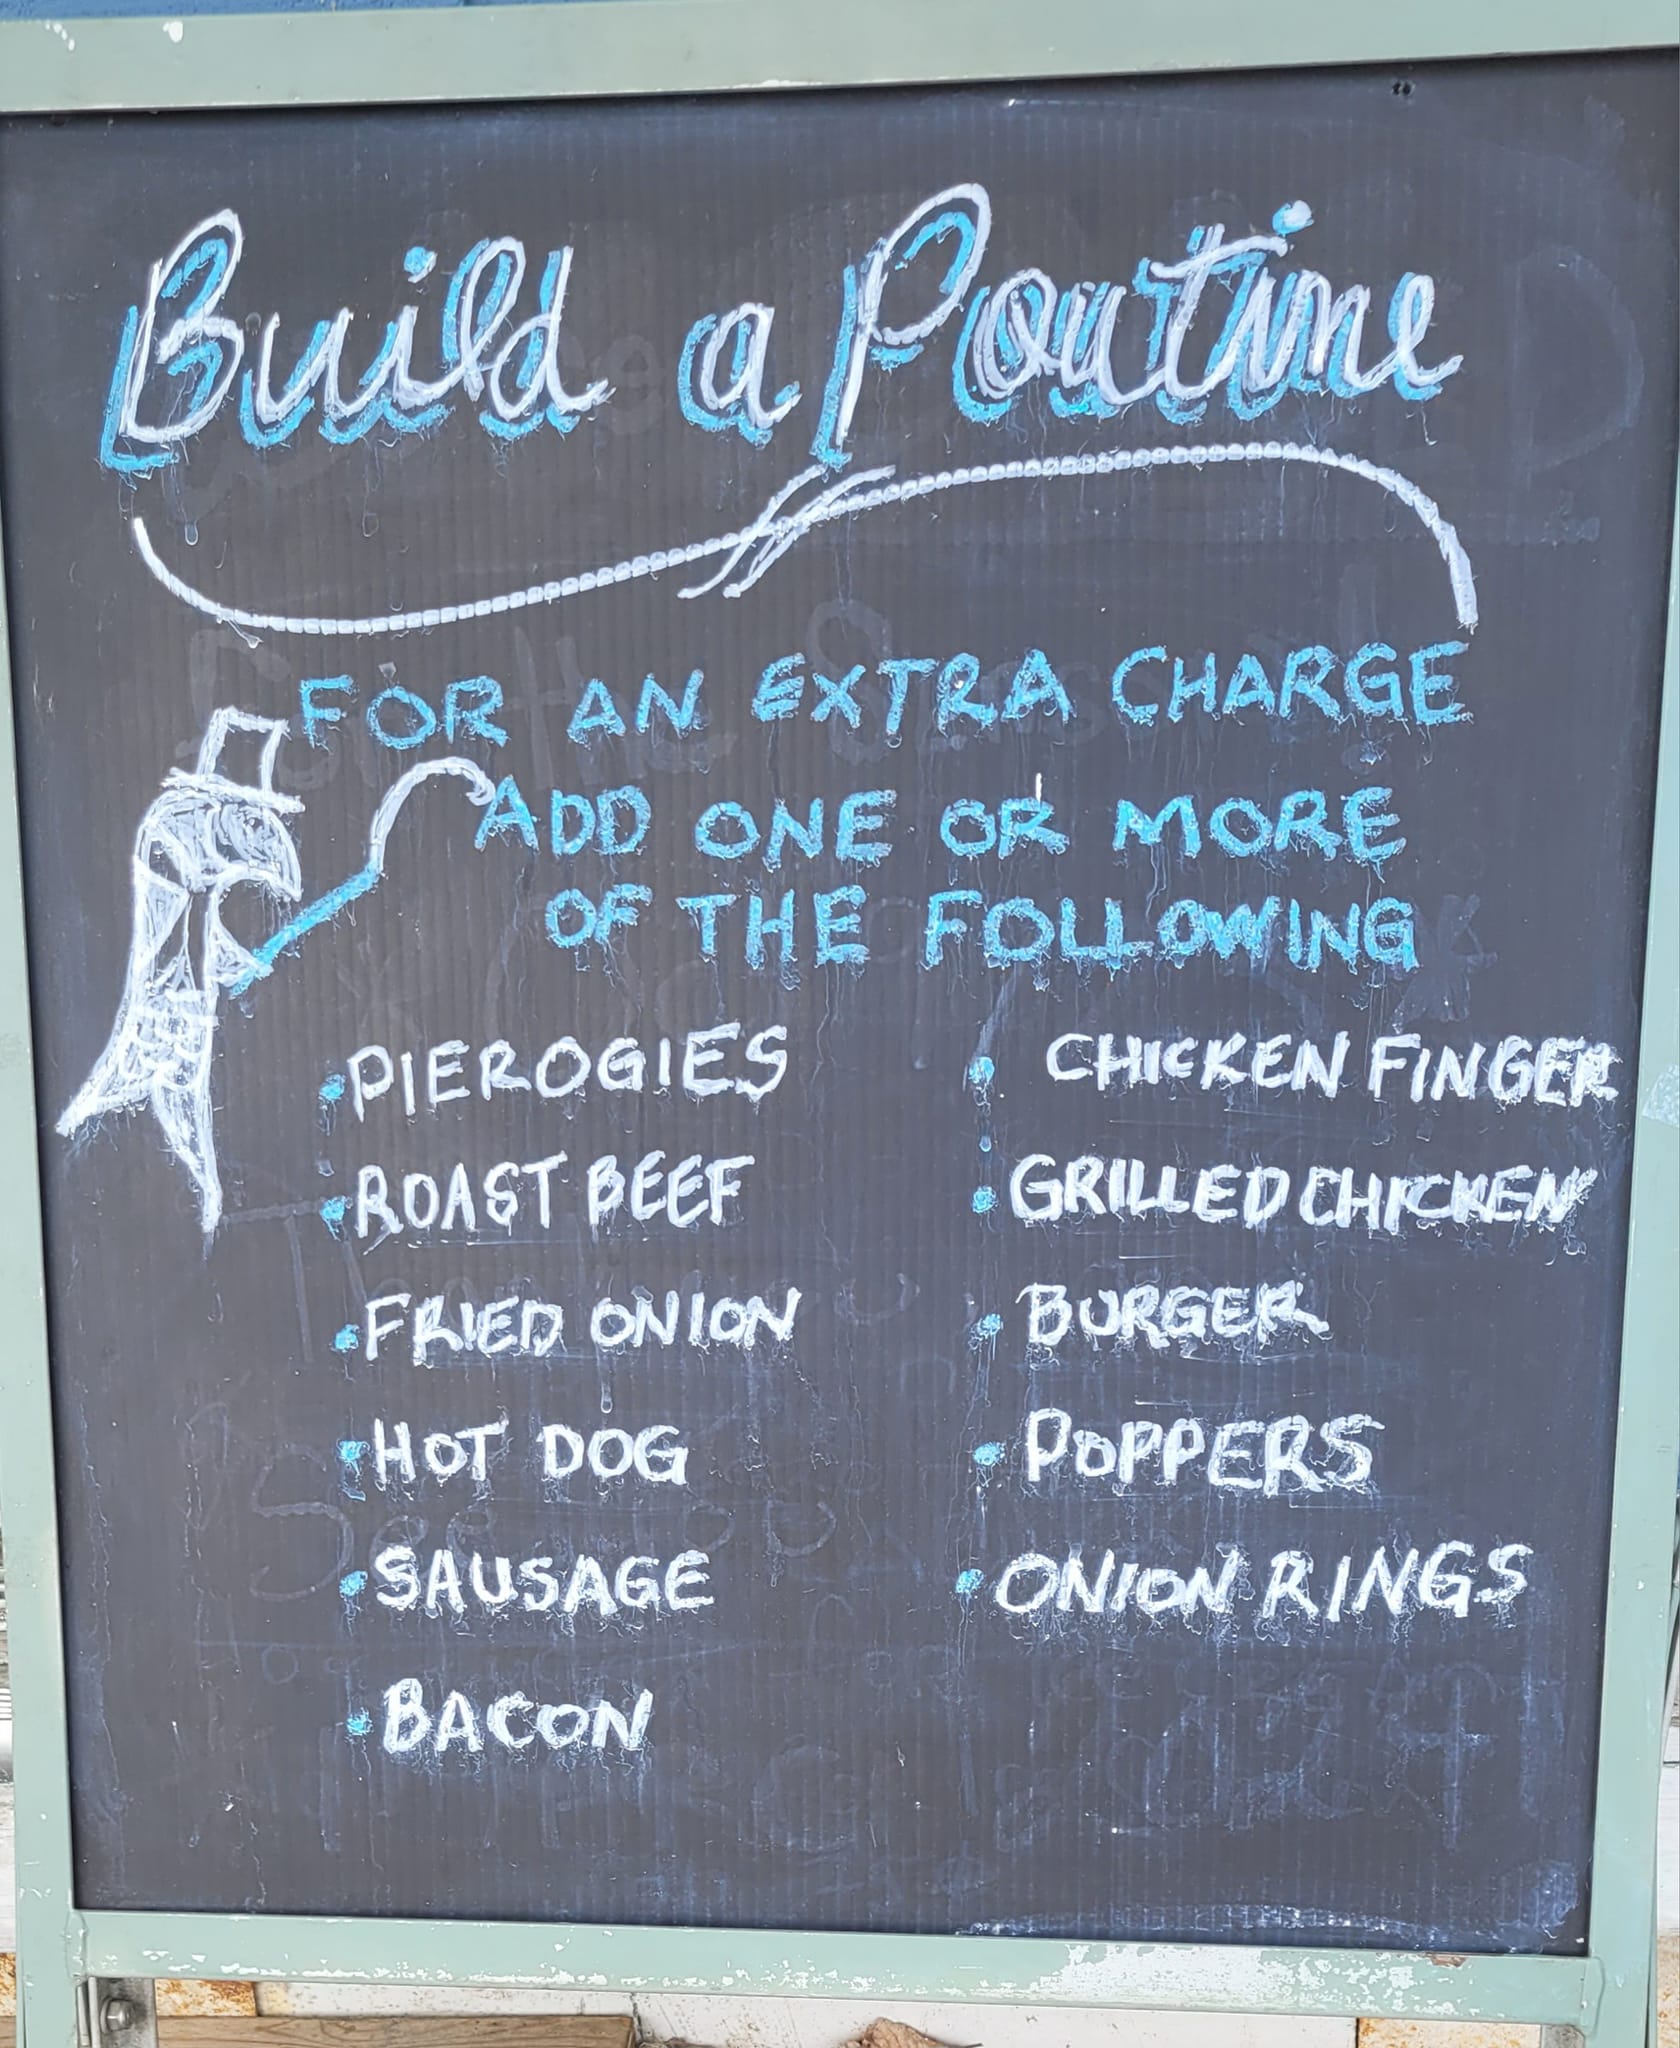 Build a Poutine
FOR AN EXTRA CHARGE
ADD ONE OR MORE
OF THE FOLLOWING
• PIEROGIES
• ROAST BEEF
• FRIED ONION
• HOT DOG
• SAUSAGE
• BACON
• CHICKEN FINGER
• GRILLED CHICKEN
• BURGER
• POPPERS
• ONION RINGS